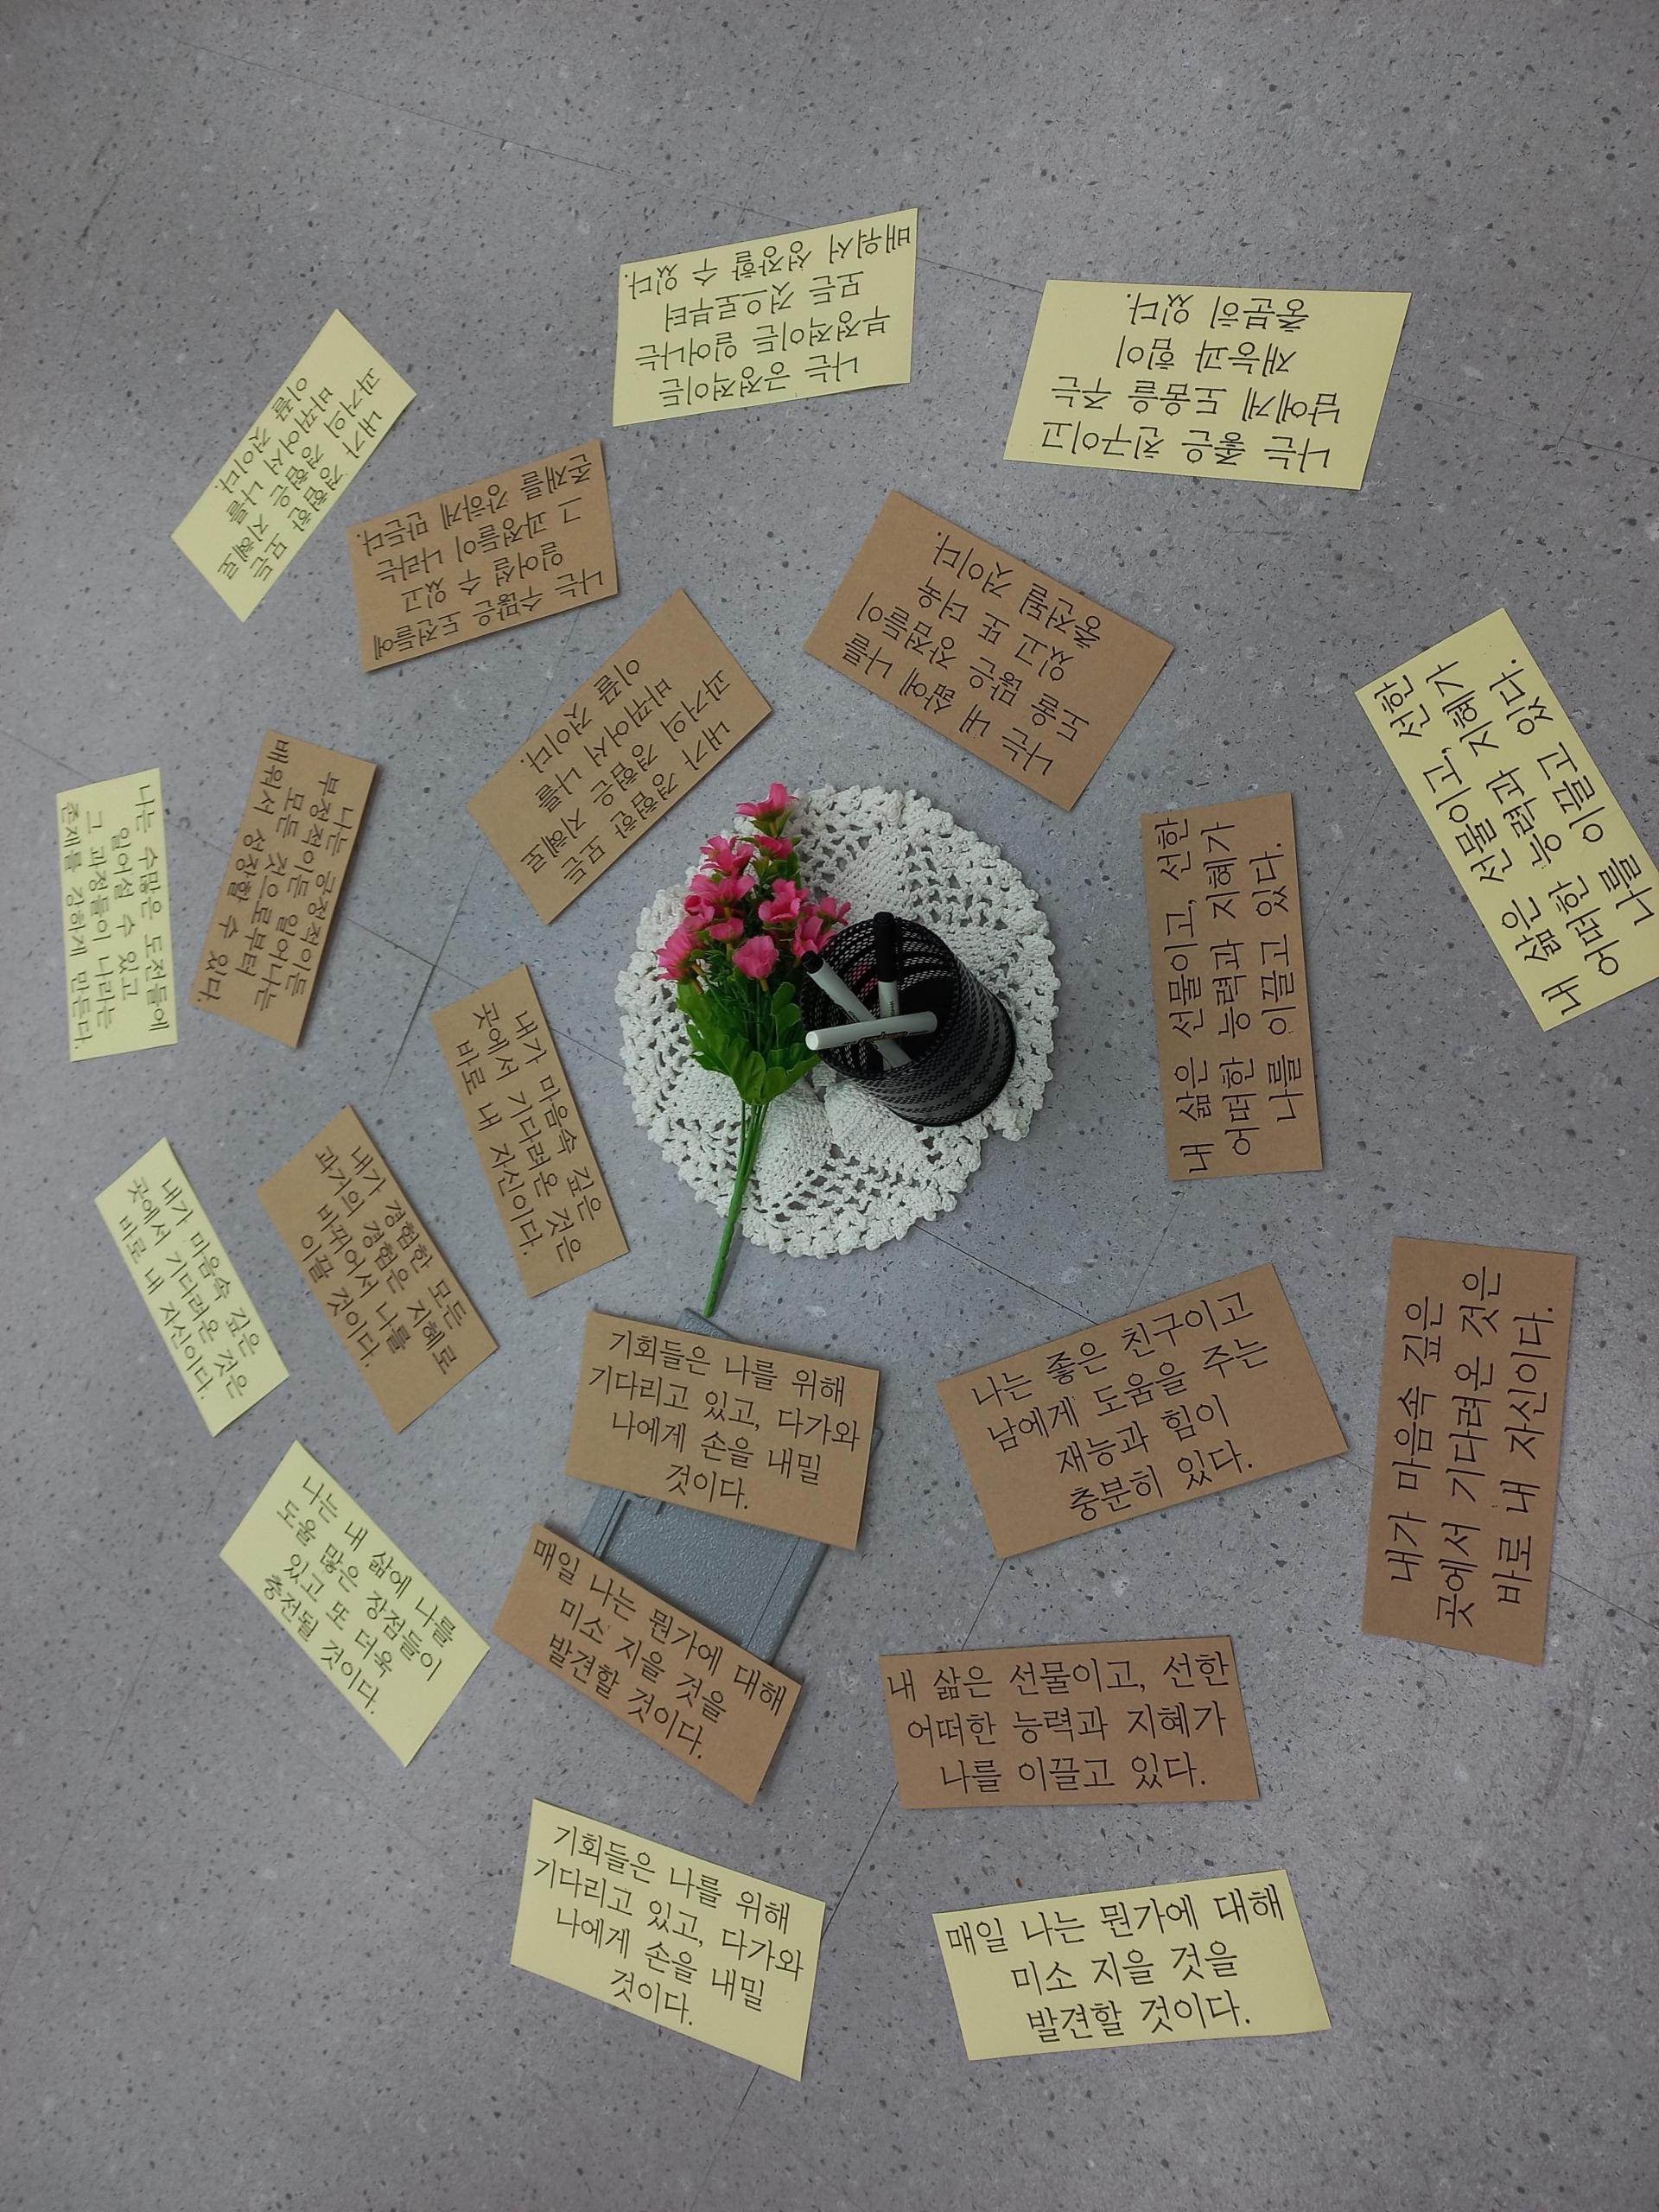 나는 긍정적이든
부정적이든 일어나는
모든 것으로부터
배워서 성장할 수 있다.
나는 좋은 친구이고
남에게 도움을 주는
재능과 힘이
충분히 있다.
내가 경험한 모든
과거의 경험은 지혜로
바뀌어서 나를
이끌 것이다.
나는 수많은 도전들에
일어설 수 있고
그 과정들이 나라는
존재를 강하게 만든다.
나는 내 삶에 나를
도울 많은 장점들이
있고 또 더욱
충전될 것이다.
내가 경험한 모든
과거의 경험은 지혜로
바뀌어서 나를
이끌 것이다.
내 삶은 선물이고, 선한
어떠한 능력과 지혜가
나를 이끌고 있다.
나는 수많은 도전들에
일어설 수 있고
그 과정들이 나라는
존재를 강하게 만든다.
나는 긍정적이든
부정적이든 일어나는
모든 것으로부터
배워서 성장할 수 있다.
내 삶은 선물이고, 선한
어떠한 능력과 지혜가
나를 이끌고 있다.
내가 마음속 깊은
곳에서 기다려온 것은
바로 내 자신이다.
내가 마음속 깊은
곳에서 기다려온 것은
바로 내 자신이다.
내가 경험한 모든
과거의 경험은 지혜로
바뀌어서 나를
이끌 것이다.
기회들은 나를 위해
기다리고 있고, 다가와
나에게 손을 내밀
것이다.
나는 좋은 친구이고
남에게 도움을 주는
재능과 힘이
충분히 있다.
내가 마음속 깊은
곳에서 기다려온 것은
바로 내 자신이다.
나는 내 삶에 나를
도울 많은 장점들이
있고 또 더욱
충전될 것이다.
매일 나는 뭔가에 대해
미소 지을 것을
발견할 것이다.
내 삶은 선물이고, 선한
어떠한 능력과 지혜가
나를 이끌고 있다.
기회들은 나를 위해
기다리고 있고, 다가와
나에게 손을 내밀
것이다.
매일 나는 뭔가에 대해
미소 지을 것을
발견할 것이다.